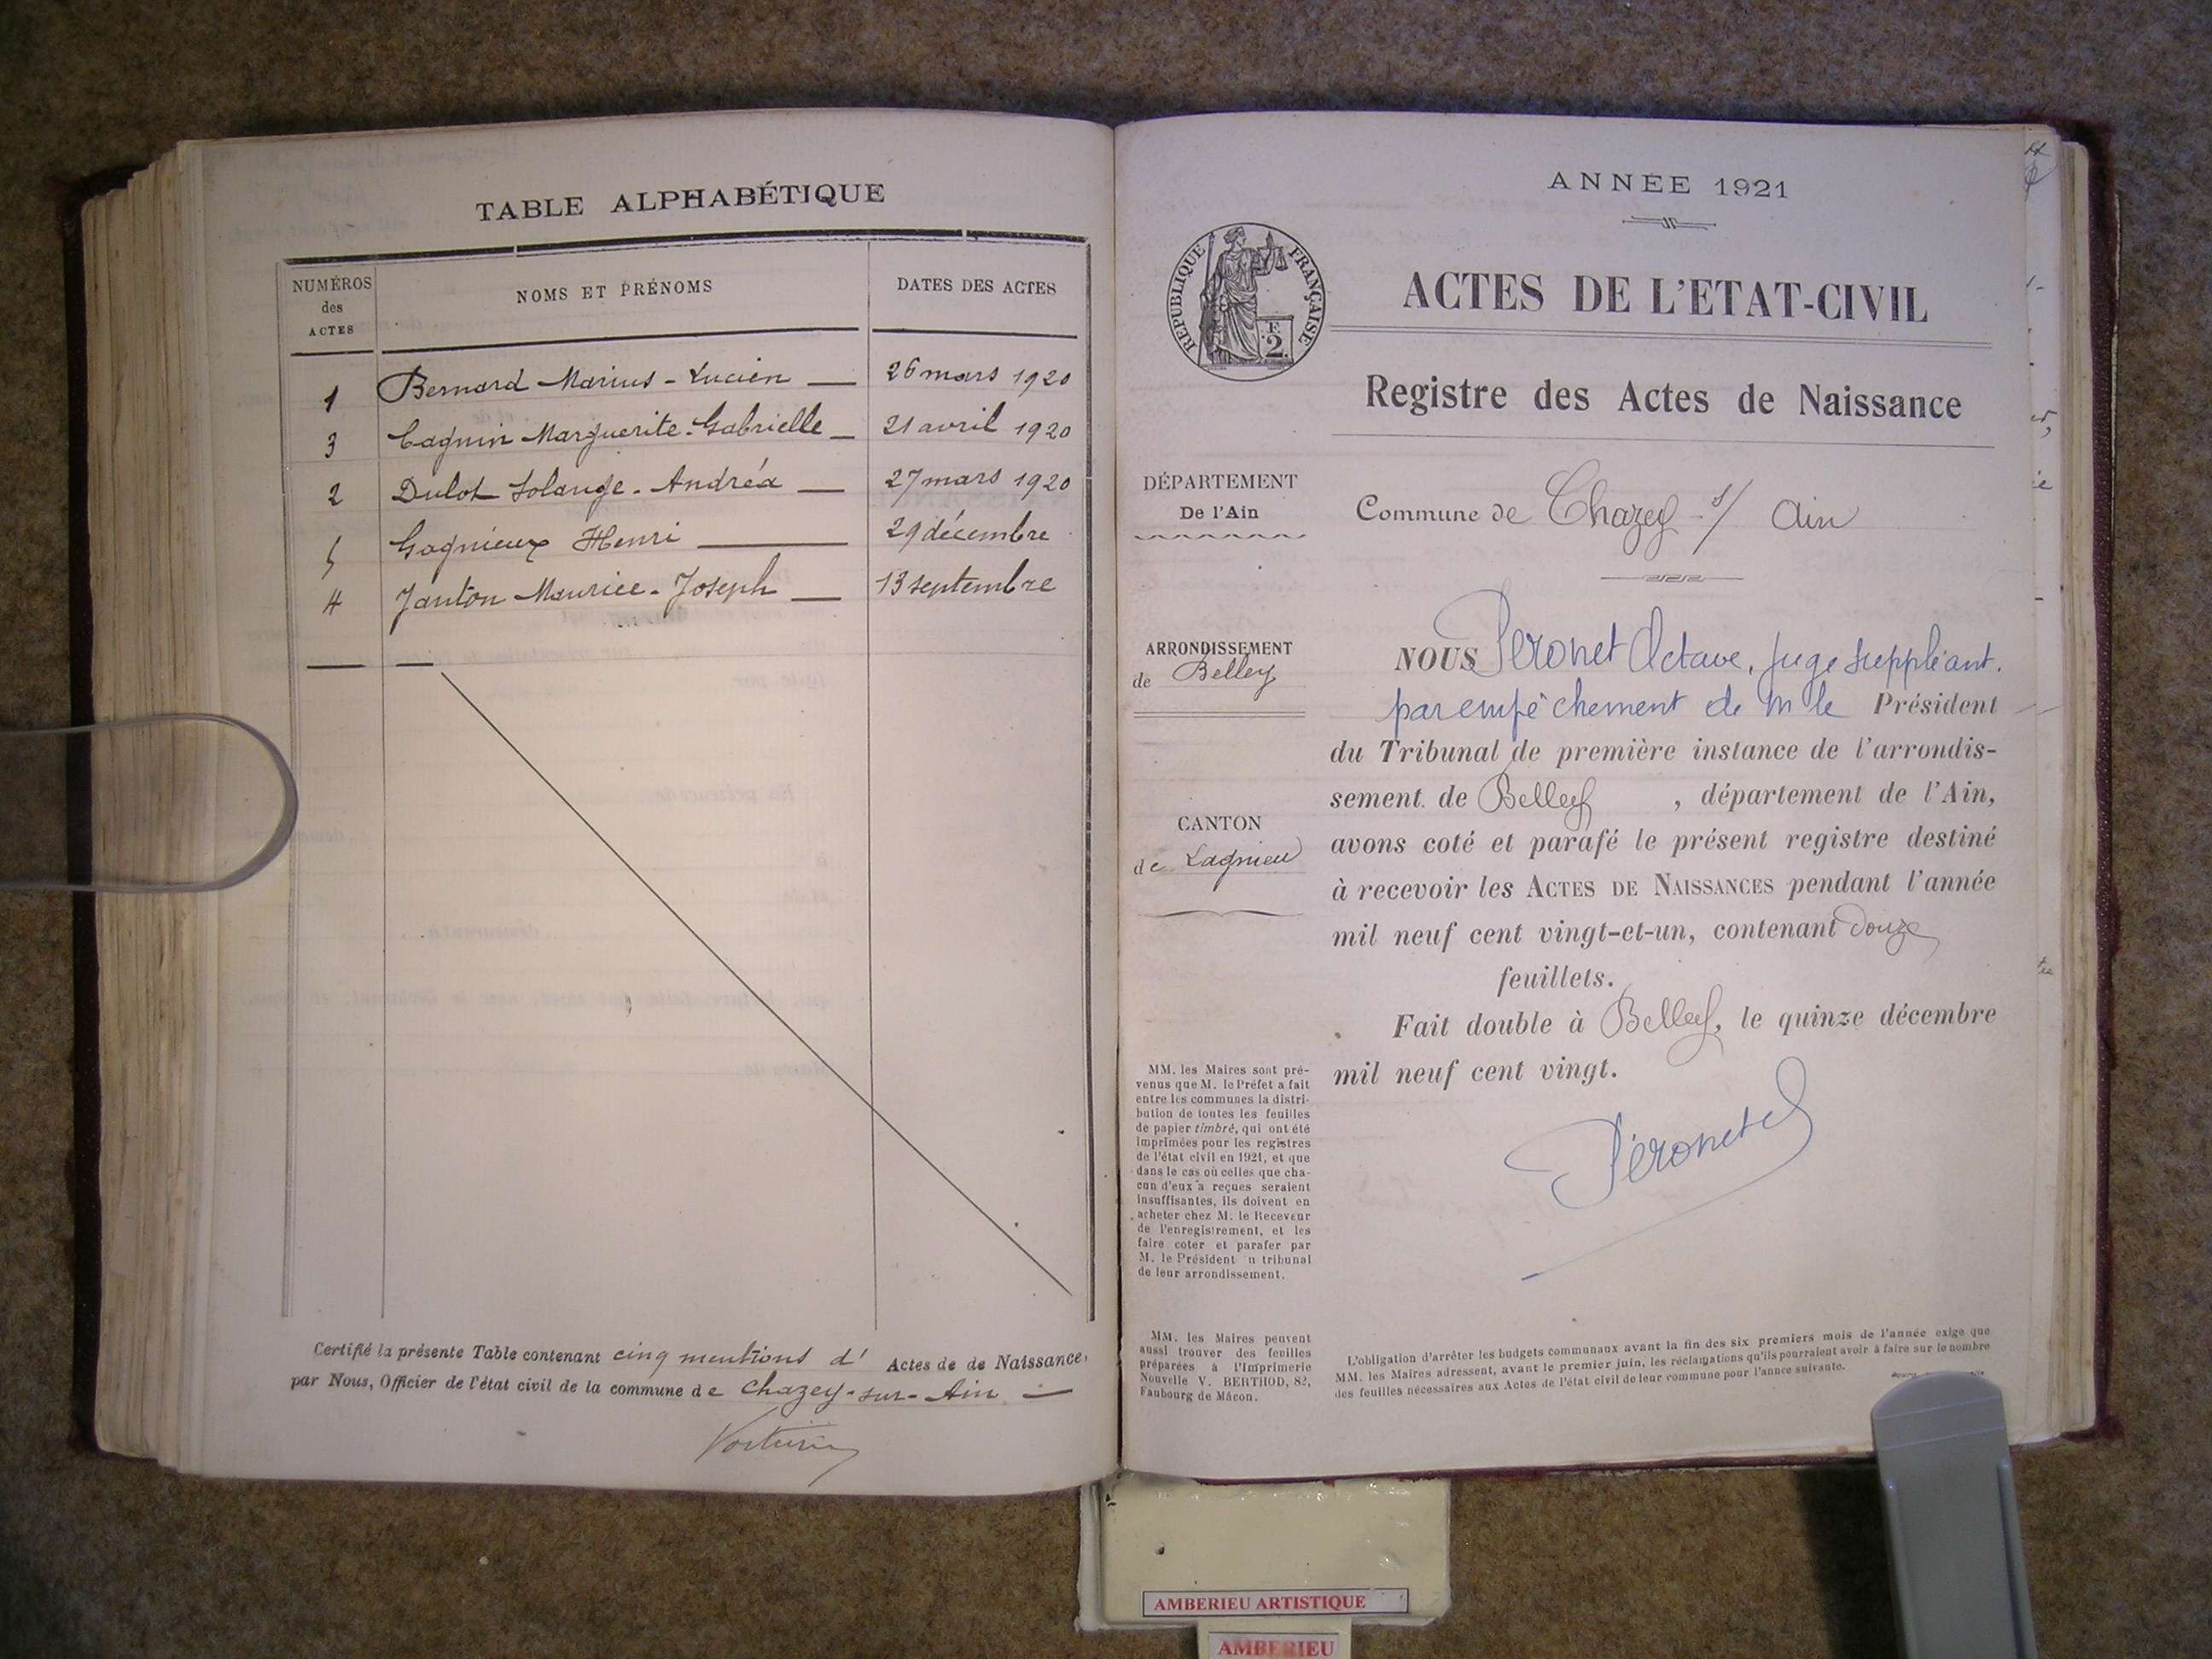 TABLE ALPHABÉTIQUE
NUMÉROS
des
ACTES
NOMS ET PRÉNOMS
DATES DES ACTES
1 Bernard Marius - Lucien — 26 mars 1920
3 Cagnin Marguerite - Gabrielle — 21 avril 1920
2 Dulot Solange - Andréa — 27 mars 1920
5 Gagnieux Henri — 29 décembre
4 Janton Maurice - Joseph — 13 septembre
Certifié la présente Table contenant cinq mentions d' Actes de de Naissance,
par Nous, Officier de l'état civil de la commune de Chazey-sur-Ain —
ANNÉE 1921
RÉPUBLIQUE FRANÇAISE
2 F.
ACTES DE L'ETAT-CIVIL
Registre des Actes de Naissance
DÉPARTEMENT
De l'Ain
Commune de Chazey s/ Ain
ARRONDISSEMENT
de Belley
CANTON
de Lagnieu
NOUS Péronet Octave, juge suppléant.
par empêchement de M le Président
du Tribunal de première instance de l'arrondis-
sement de Belley , département de l'Ain,
avons coté et parafé le présent registre destiné
à recevoir les ACTES DE NAISSANCES pendant l'année
mil neuf cent vingt-et-un, contenant douze
feuillets.
Fait double à Belley, le quinze décembre
mil neuf cent vingt.
Péronet
MM. les Maires sont pré-
venus que M. le Préfet a fait
entre les communes la distri-
bution de toutes les feuilles
de papier timbré, qui ont été
imprimées pour les registres
de l'état civil en 1921, et que
dans le cas où celles que cha-
cun d'eux a reçues seraient
insuffisantes, ils doivent en
acheter chez M. le Receveur
de l'enregistrement, et les
faire coter et parafer par
M. le Président n tribunal
de leur arrondissement.
MM. les Maires peuvent
aussi trouver des feuilles
préparées à l'Imprimerie
Nouvelle V. BERTHOD, 82,
Faubourg de Mâcon.
L'obligation d'arrêter les budgets communaux avant la fin des six premiers mois de l'année exige que
MM. les Maires adressent, avant le premier juin, les réclamations qu'ils pourraient avoir à faire sur le nombre
des feuilles nécessaires aux Actes de l'état civil de leur commune pour l'année suivante.
AMBERIEU ARTISTIQUE
AMBERIEU